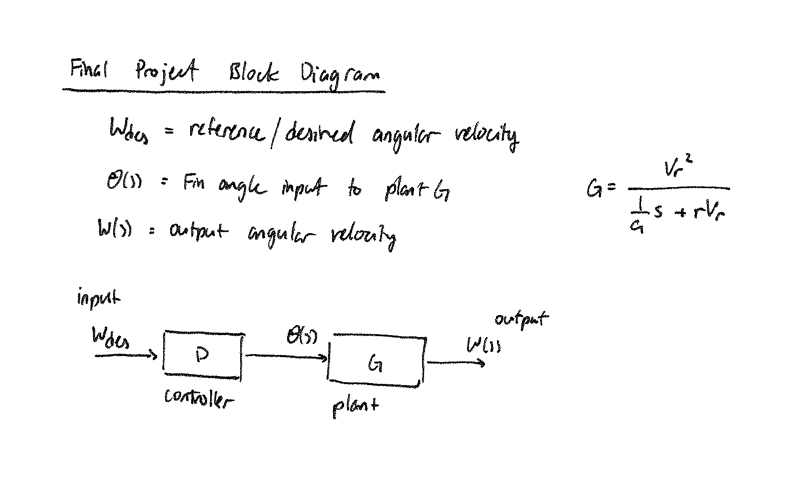 Final Project Block Diagram
Wdes = reference/desired angular velocity
θ(s) = Fin angle input to plant G
W(s) = output angular velocity
G = Vr² / (1/G s + rVr)
input
Wdes
D
controller
θ(s)
G
plant
output
W(s)